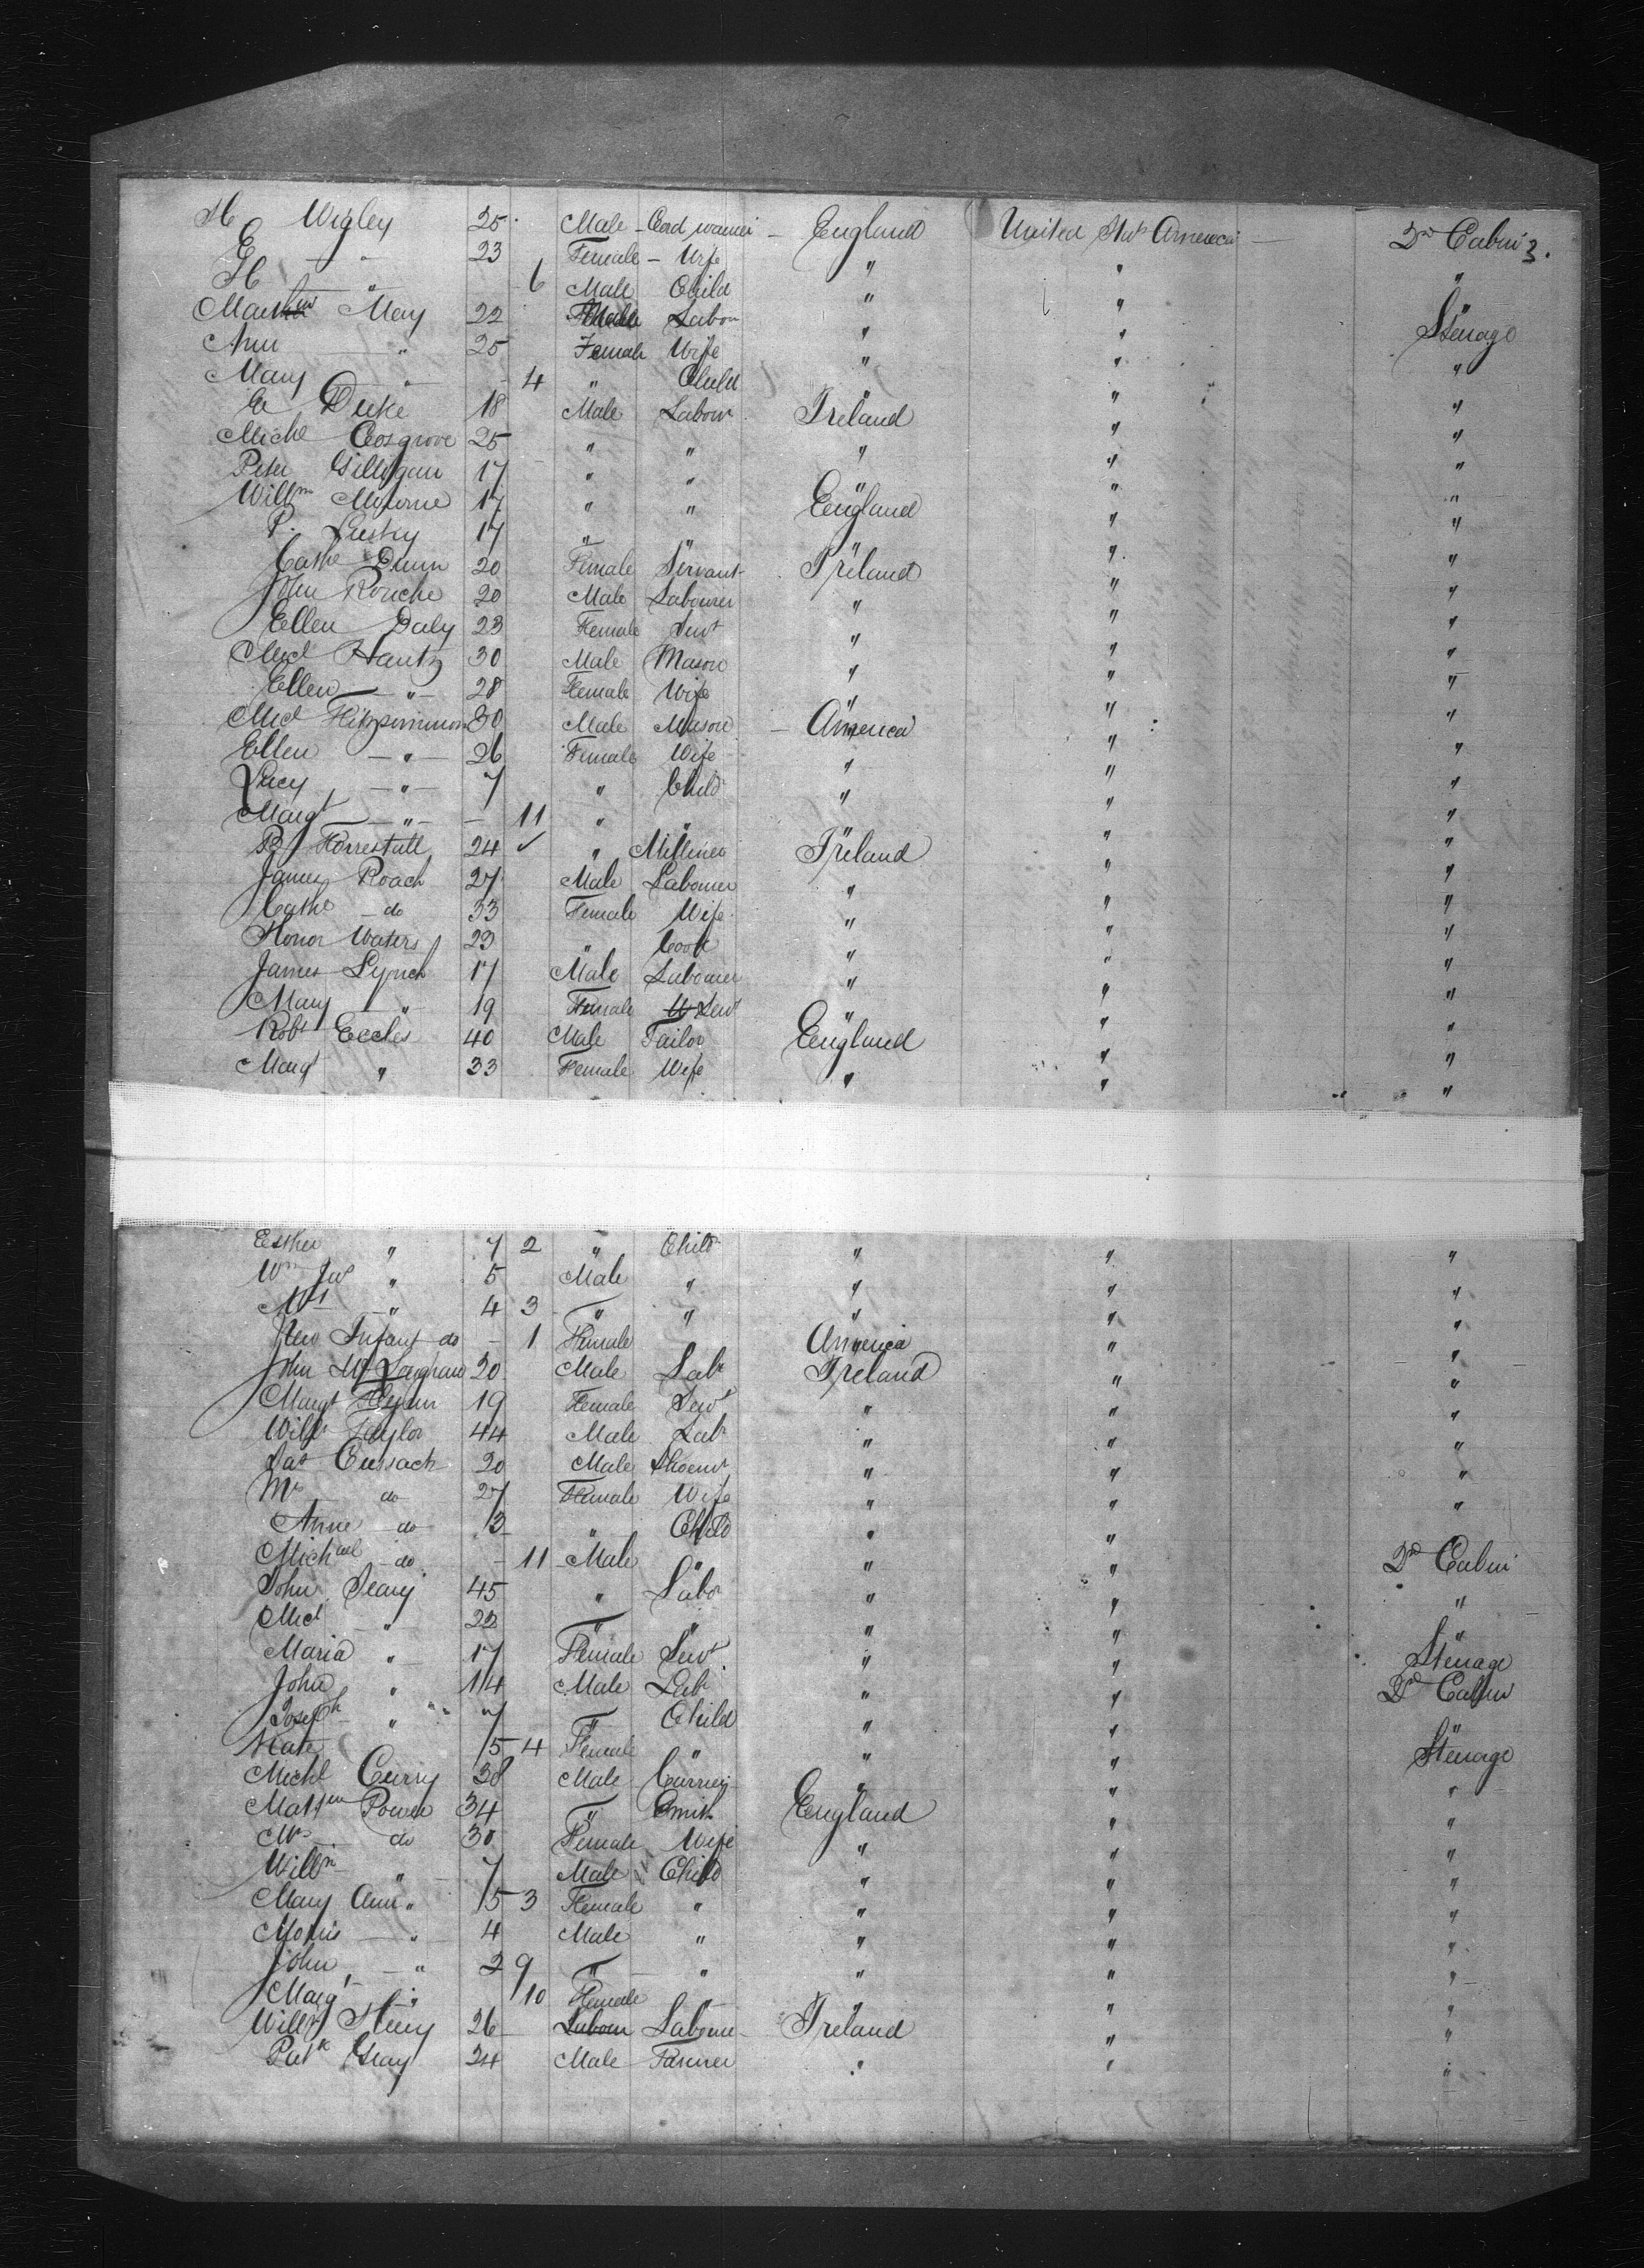 H Wigley 25 Male - Cord wainer - England United Stats America - 2nd Cabin 3.
E - " 23 Female - Wife " " "
H " - 6 Male Child " " "
Matthew Mey 22 Male Labour " " Steerage
Ann - " 25 Female Wife " " "
Mary " - 4 " Child " " "
E Duke 18 Male Labour Ireland " "
Michl Cosgrove 25 " " " " "
Peter Gilligan 17 " " " " "
Willm 17 " " England " "
P. 17 " " " " "
Cathe Dunn 20 Female Servant Ireland " "
John Rouche 20 Male Labourer " " "
Ellen Daly 23 Female Servt " " "
Micl Hautz 30 Male Mason " " "
Ellen - " - 28 Female Wife " " "
Micl Fitzsimmon 30 Male Mason - America " "
Ellen - " - 26 Female Wife " " "
Lucy - " - 7 " Child " " "
Margt - " - - 11 " " " " "
B Forrestall 24 ✓ " Milliner Ireland " "
James Roach 27 Male Labourer " " "
Cathe - do 33 Female Wife " " "
Honor Waters 23 " Cook " " "
James Lynch 17 Male Labourer " " "
Mary " - 19 Female W Servt " " "
Robt Eccles 40 Male Tailor England " "
Margt " 33 Female Wife " " "
Esther " 7 2 " Child " " "
Wm Jas " 5 Male " " " "
" 4 3 " " " " "
New Infant do - 1 Female America " "
John 20 Male Labr Ireland " "
Margt Flynn 19 Female Servt " " "
Willm Taylor 44 Male Labr " " "
Jas Cussack 20 Male Shoemr " " "
Mrs do 27 Female Wife " " "
Anne do 3 " Child " " "
Michael do - 11 Male " " " 2nd Cabin
John Leary 45 " Labr " " "
Micl " 22 " " " " "
Maria " 17 Female Servt " " Steerage
John " 14 Male Labr " " 2d Cabin
Joseph " 7 " Child " " "
Kate 5 4 Female " " " Steerage
Michl Curry 38 Male Currier " " "
Matthw Power 34 " Smith England " "
Mrs do 30 Female Wife " " "
Willm " 7 Male Child " " "
Mary Ann " 5 3 Female " " " "
Morris - " 4 Male " " " "
John - " 2 9 " " " " "
Margt - " 10 Female " " " "
Willm 26 Labour Labour Ireland " "
Patk Gray 24 Male Farmer " " "